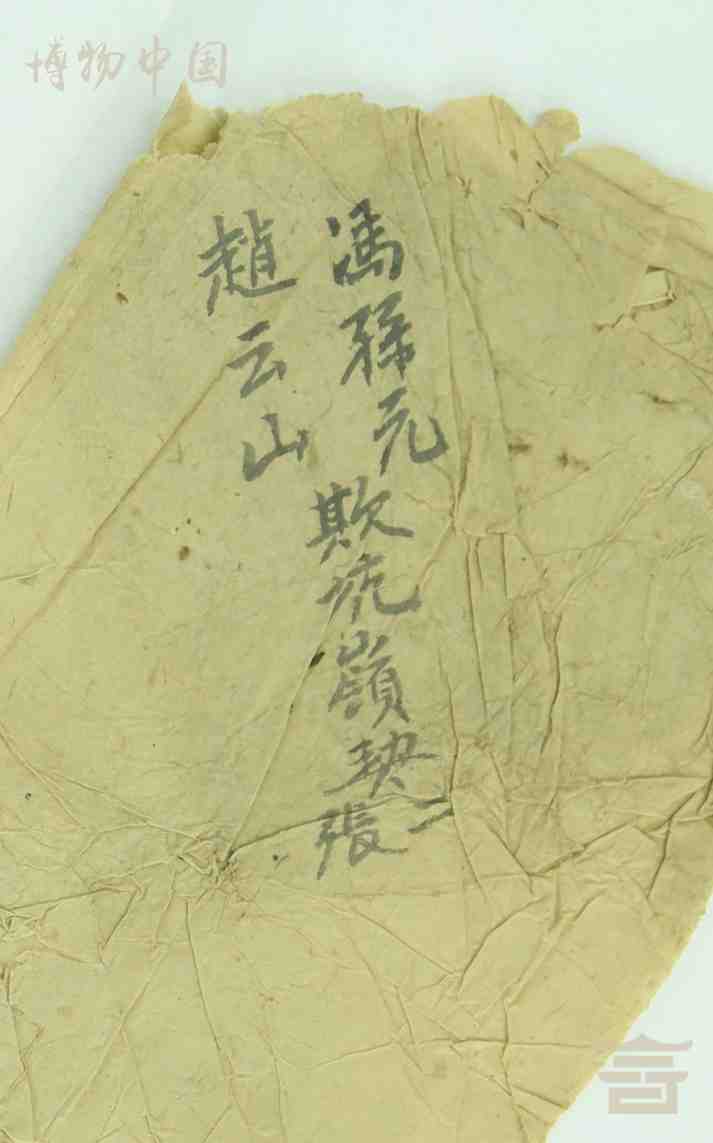 博物中国
馮孫元
趙云山
欺坑嶺契二張